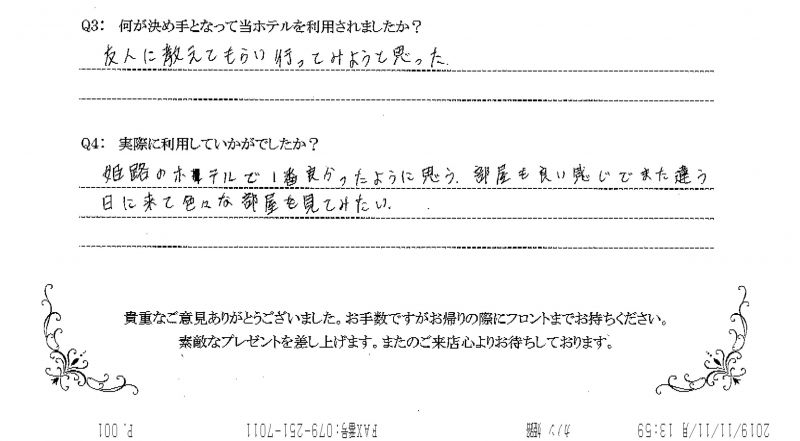 Q3: 何が決め手となって当ホテルを利用されましたか?
友人に教えてもらい行ってみようと思った.
Q4: 実際に利用していかがでしたか?
姫路のホテルで1番良かったように思う.部屋も良い感じでまた違う
日に来て色々な部屋も見てみたい.
貴重なご意見ありがとうございました。お手数ですがお帰りの際にフロントまでお持ちください。
素敵なプレゼントを差し上げます。またのご来店心よりお待ちしております。
2019/11/11/月 13:59 カノン 姫路 FAX番号:079-251-7011 P. 001